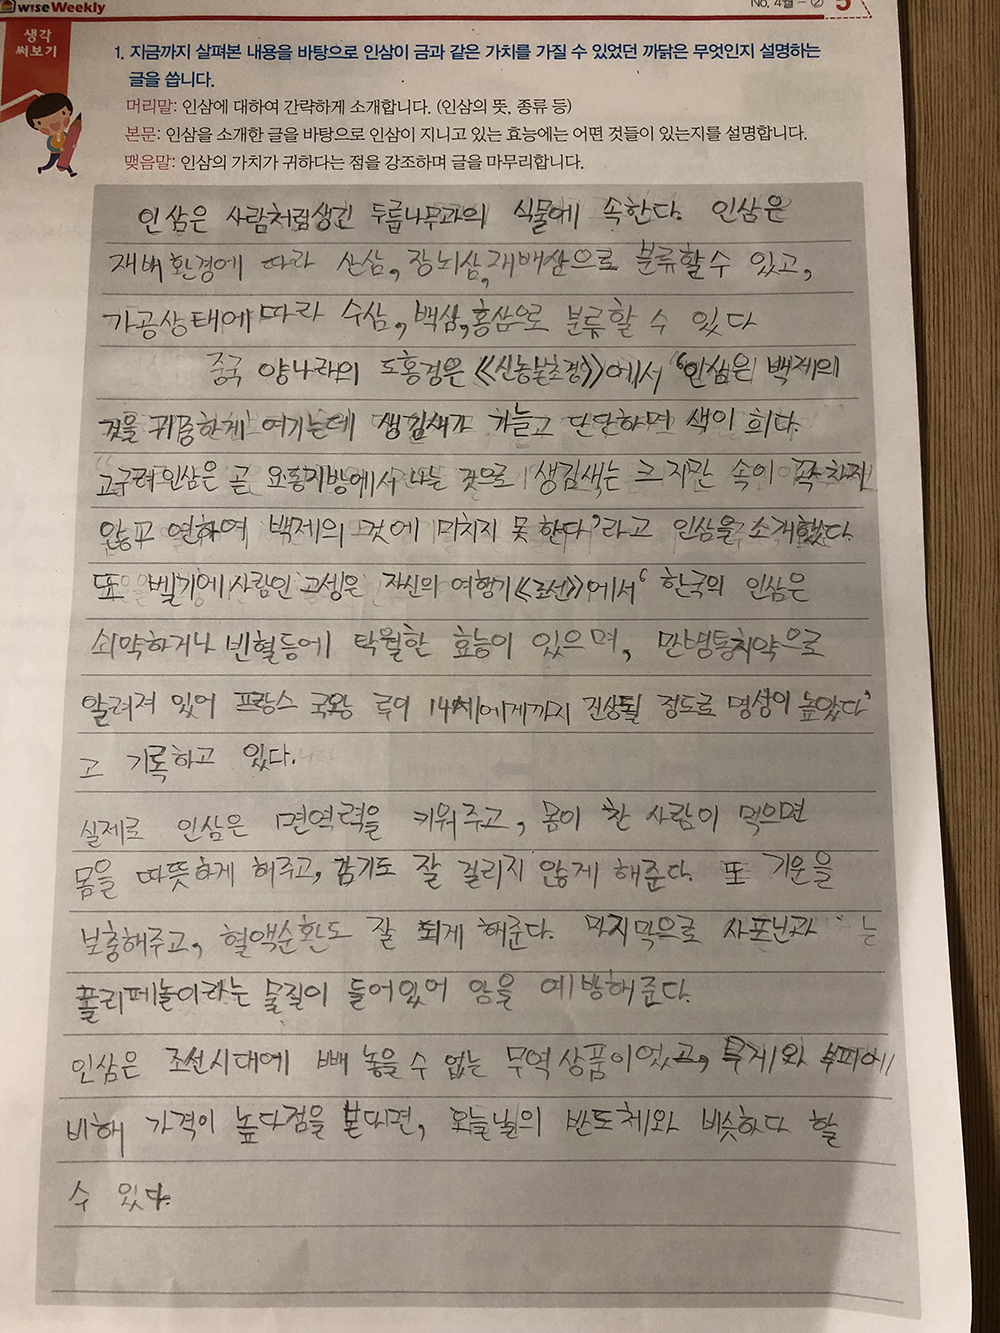 wiseWeekly
No. 4월 - ② 5
생각
써보기
1. 지금까지 살펴본 내용을 바탕으로 인삼이 금과 같은 가치를 가질 수 있었던 까닭은 무엇인지 설명하는
글을 씁니다.
머리말: 인삼에 대하여 간략하게 소개합니다. (인삼의 뜻, 종류 등)
본문: 인삼을 소개한 글을 바탕으로 인삼이 지니고 있는 효능에는 어떤 것들이 있는지를 설명합니다.
맺음말: 인삼의 가치가 귀하다는 점을 강조하며 글을 마무리합니다.
인삼은 사람처럼생긴 두릅나무과의 식물에 속한다. 인삼은
재배환경에 따라 산삼, 장뇌삼, 재배삼으로 분류할수 있고,
가공상태에따라 수삼, 백삼, 홍삼으로 분류할 수 있다
중국 양나라의 도홍경은 《신농본초경》에서 '인삼은 백제의
것을 귀중하게 여기는데 생김새가 가늘고 단단하며 색이 희다.
고구려인삼은 곧 요동지방에서 나는 것으로 생김색는 크지만 속이 꽉차지
않고 연하여 백제의 것에 미치지 못 한다'라고 인삼을 소개했다.
또 벨기에 사람인 고셍은 자신의 여행기《조선》에서' 한국의 인삼은
쇠약하거나 빈혈등에 탁월한 효능이 있으며, 만병통치약으로
알려져 있어 프랑스 국왕 루이 14세에게까지 진상될 정도로 명성이 높았다'
고 기록하고 있다.
실제로 인삼은 면역력을 키워주고, 몸이 찬 사람이 먹으면
몸을 따뜻하게 해주고, 감기도 잘 걸리지 않게 해준다. 또 기운을
보충해주고, 혈액순환도 잘 되게 해준다. 마지막으로 사포닌과
폴리페놀이라는 물질이 들어있어 암을 예방해준다.
인삼은 조선시대에 빼 놓을 수 없는 무역상품이었고, 무게와 부피에
비해 가격이 높다점을 본다면, 오늘날의 반도체와 비슷하다 할
수 있다.